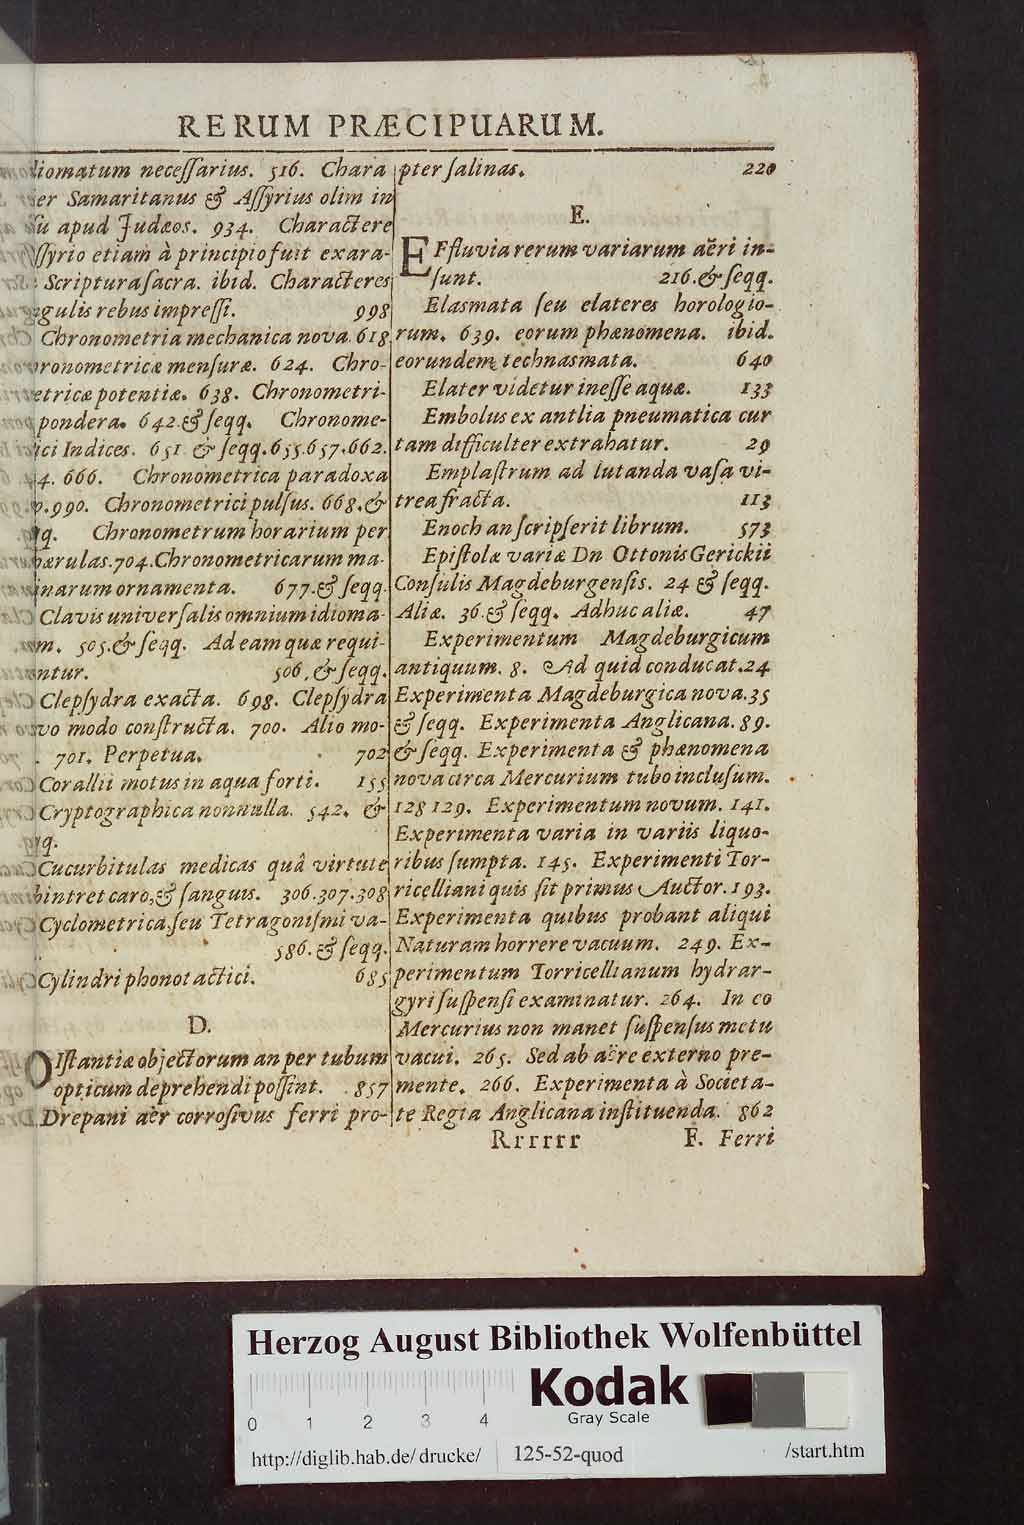 RERUM PRÆCIPUARUM.
diomatum neceſſarius. 516. Chara
ter Samaritanus & Aſſyrius olim in
ſu apud Judæos. 934. Charactere
ſſyrio etiam à principio fuit exara-
Scriptura ſacra. ibid. Characteres
ngulis rebus impreſſi. 998
Chronometria mechanica nova. 618
ronometricæ menſuræ. 624. Chro-
etricæ potentiæ. 638. Chronometri-
pondera. 642. & ſeqq. Chronome-
ici Indices. 651. & ſeqq. 655. 657. 662.
4. 666. Chronometrica paradoxa
p. 990. Chronometrici pulſus. 668. &
qq. Chronometrum horarium per
hærulas. 704. Chronometricarum ma-
inarum ornamenta. 677. & ſeqq.
Clavis univerſalis omnium idioma-
m. 505. & ſeqq. Ad eam quæ requi-
ntur. 506. & ſeqq.
Clepſydra exacta. 698. Clepſydra
vo modo conſtructa. 700. Alio mo-
. 701. Perpetua. 702
Corallii motus in aqua forti. 155
Cryptographica nonnulla. 542. &
qq.
Cucurbitulas medicas quâ virtute
bintret caro, & ſanguis. 306. 307. 308
Cyclometrica, ſeu Tetragoniſmi va-
586. & ſeqq.
Cylindri phonotactici. 685
D.
DIſtantiæ objectorum an per tubum
opticum deprehendi poſſint. 857
Drepani aër corroſivus ferri pro-
pter ſalinas. 220
E.
EFfluvia rerum variarum aëri in-
ſunt. 216. & ſeqq.
Elasmata ſeu elateres horologio-
rum. 639. eorum phænomena. ibid.
eorundem technasmata. 640
Elater videtur ineſſe aquæ. 133
Embolus ex antlia pneumatica cur
tam difficulter extrahatur. 29
Emplaſtrum ad lutanda vaſa vi-
trea fracta. 113
Enoch an ſcripſerit librum. 573
Epiſtolæ variæ Dn Ottonis Gerickii
Conſulis Magdeburgenſis. 24 & ſeqq.
Aliæ. 36. & ſeqq. Adhuc aliæ. 47
Experimentum Magdeburgicum
antiquum. 8. Ad quid conducat. 24
Experimenta Magdeburgica nova. 35
& ſeqq. Experimenta Anglicana. 89.
& ſeqq. Experimenta & phænomena
nova circa Mercurium tubo incluſum.
128 129. Experimentum novum. 141.
Experimenta varia in variis liquo-
ribus ſumpta. 145. Experimenti Tor-
ricelliani quis ſit primus Auctor. 193.
Experimenta quibus probant aliqui
Naturam horrere vacuum. 249. Ex-
perimentum Torricellianum hydrar-
gyri ſuſpenſi examinatur. 264. In eo
Mercurius non manet ſuſpenſus metu
vacui. 265. Sed ab aëre externo pre-
mente. 266. Experimenta à Societa-
te Regia Anglicana inſtituenda. 862
Rrrrrr F. Ferri
Herzog August Bibliothek Wolfenbüttel
Kodak
Gray Scale
0 1 2 3 4
http://diglib.hab.de/drucke/ 125-52-quod /start.htm